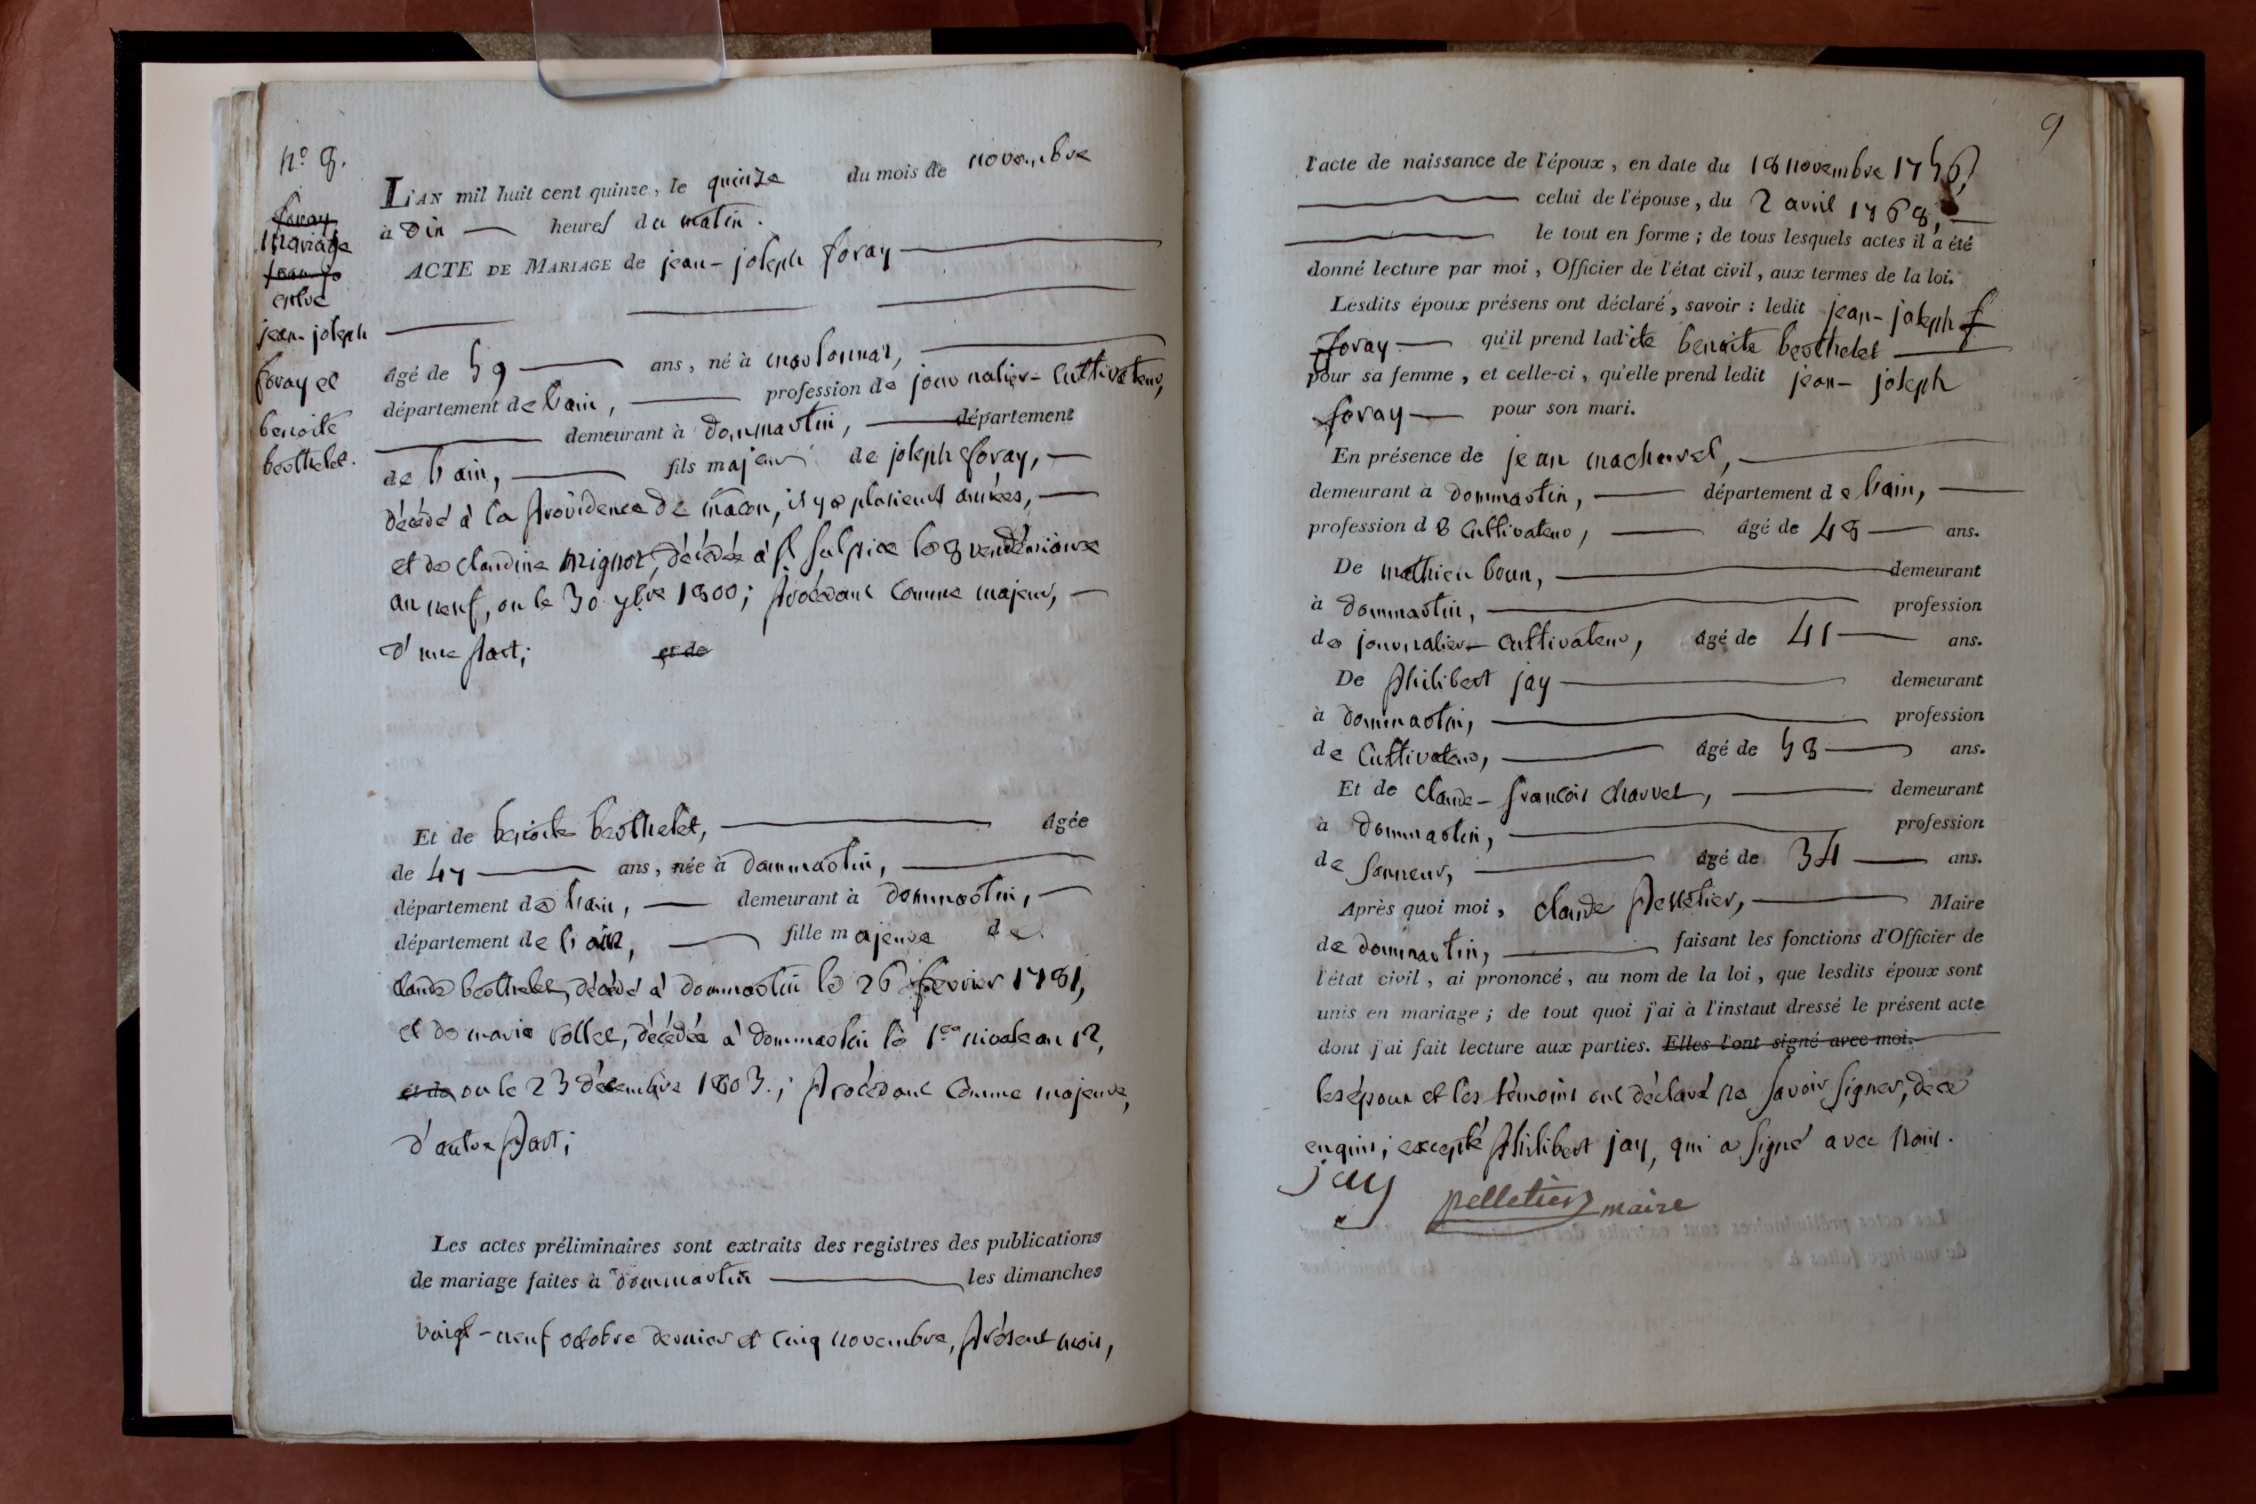 n.° 8.
foray
mariage
jean-jo
entre
jean-joseph
foray et
benoite
berthelet.
L'AN mil huit cent quinze, le quinze du mois de novembre
à dix heures du matin.
ACTE DE MARIAGE de jean-joseph foray
âgé de 59 ans, né à
département de l'ain, profession de journalier-cultivateur,
demeurant à dommartin, département
de l'ain, fils majeur de joseph foray,
décédé à la providence de mâcon, il y a plusieurs années,
et de claudine mignot, décédée à st sulpice le 8 vendémiaire
an neuf, ou le 30 7bre 1800; procédant comme majeur,
d'une part; et de
Et de benoite berthelet, âgée
de 47 ans, née à dommartin,
département de l'ain, demeurant à dommartin,
département de l'ain, fille majeure de
claude berthelet, décédé à dommartin le 26 fevrier 1781,
et de marie rollet, décédée à dommartin le 1er nivose an 12,
et de ou le 23 décembre 1803.; procédant comme majeure,
d'autre part;
Les actes préliminaires sont extraits des registres des publications
de mariage faites à dommartin les dimanches
vingt-neuf octobre dernier et cinq novembre, présent mois,
9
l'acte de naissance de l'époux, en date du 18 novembre 1756,
celui de l'épouse, du 2 avril 1768,
le tout en forme; de tous lesquels actes il a été
donné lecture par moi, Officier de l'état civil, aux termes de la loi.
Lesdits époux présens ont déclaré, savoir: ledit jean-joseph f
foray qu'il prend ladite benoite berthelet
pour sa femme, et celle-ci, qu'elle prend ledit jean-joseph
foray pour son mari.
En présence de jean macheret,
demeurant à dommartin, département de l'ain,
profession de cultivateur, âgé de 48 ans.
De mathieu boun, demeurant
à dommartin, profession
de journalier-cultivateur, âgé de 41 ans.
De philibert jay demeurant
à dommartin, profession
de cultivateur, âgé de 58 ans.
Et de claude-françois charvet, demeurant
à dommartin, profession
de sonneur, âgé de 34 ans.
Après quoi moi, claude pelletier, Maire
de dommartin, faisant les fonctions d'Officier de
l'état civil, ai prononcé, au nom de la loi, que lesdits époux sont
unis en mariage; de tout quoi j'ai à l'instaut dressé le présent acte
dont j'ai fait lecture aux parties. Elles l'ont signé avec moi.
les époux et les témoins ont déclaré ne savoir signer, de ce
enquis; excepté philibert jay, qui a signé avec nous.
jay
pelletier maire